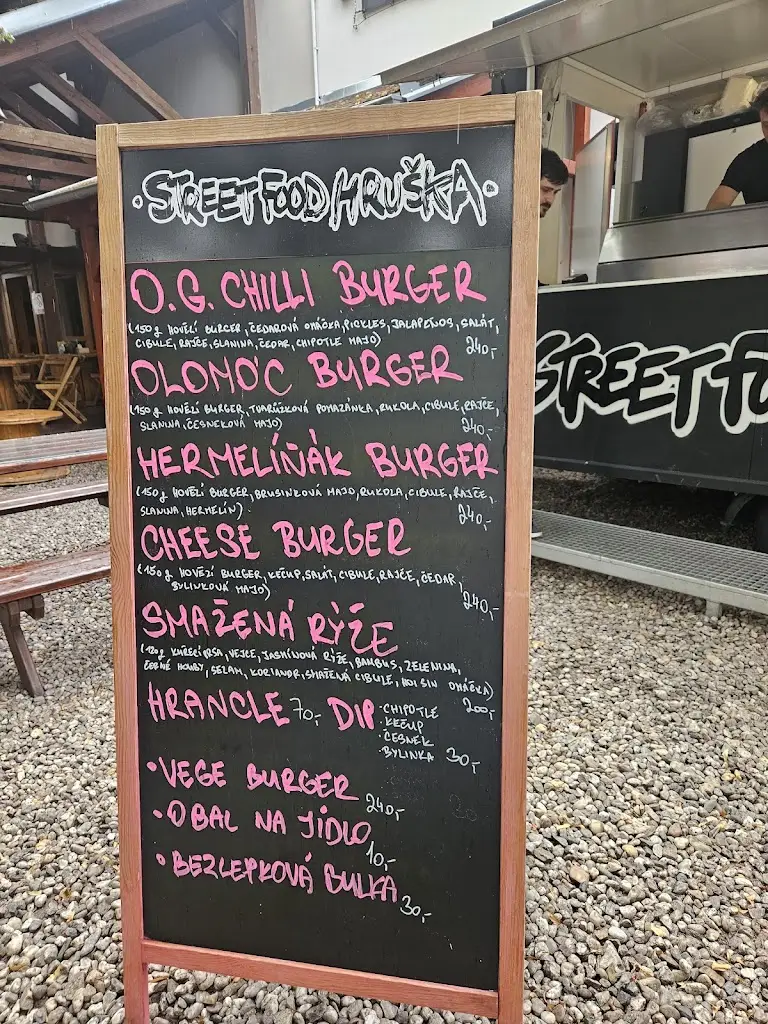 ·STREET FOOD HRUŠKA·
O.G. CHILLI BURGER
(150g HOVĚZÍ BURGER, ČEDAROVÁ OMÁČKA, PICKLES, JALAPEÑOS, SALÁT,
CIBULE, RAJČE, SLANINA, ČEDAR, CHIPOTLE MAJO) 240,-
OLOMO'C BURGER
(150g HOVĚZÍ BURGER, TVARŮŽKOVÁ POMAZÁNKA, RUKOLA, CIBULE, RAJČE,
SLANINA, ČESNEKOVÁ MAJO) 240,-
HERMELÍŇÁK BURGER
(150g HOVĚZÍ BURGER, BRUSINKOVÁ MAJO, RUKOLA, CIBULE, RAJČE,
SLANINA, HERMELÍN) 240,-
CHEESE BURGER
(150g HOVĚZÍ BURGER, KEČUP, SALÁT, CIBULE, RAJČE, ČEDAR,
BYLINKOVÁ MAJO) 240,-
SMAŽENÁ RÝŽE
(120g KUŘECÍ PRSA, VEJCE, JASMÍNOVÁ RÝŽE, BAMBUS, ZELENINA,
ČERNÉ HOUBY, SEZAM, KORIANDR, SMAŽENÁ CIBULE, HOISIN OMÁČKA)
200,-
HRANCLE 70,- DIP ·CHIPOTLE
·KEČUP
·ČESNEK
·BYLINKA 30,-
·VEGE BURGER 240,-
·OBAL NA JÍDLO 10,-
·BEZLEPKOVÁ BULKA 30,-
STREET FO